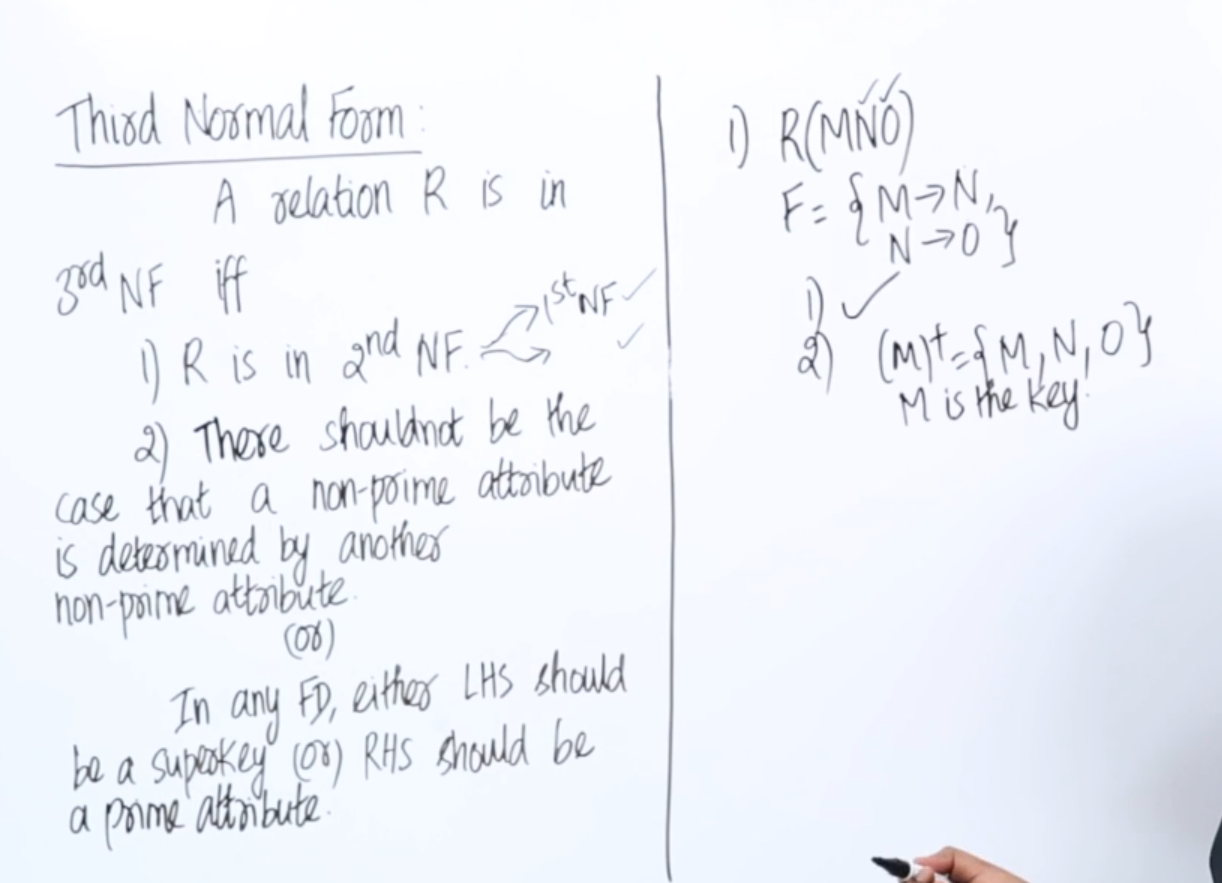 Third Normal Form:
A relation R is in
3rd NF iff
1) R is in 2nd NF. → 1st NF ✓
→ ✓
2) There shouldnot be the
case that a non-prime attribute
is determined by another
non-prime attribute.
(or)
In any FD, either LHS should
be a superkey (or) RHS should be
a prime attribute.
1) R(MNO)
F = { M → N,
N → O }
1) ✓
2) (M)+ = { M, N, O }
M is the key.